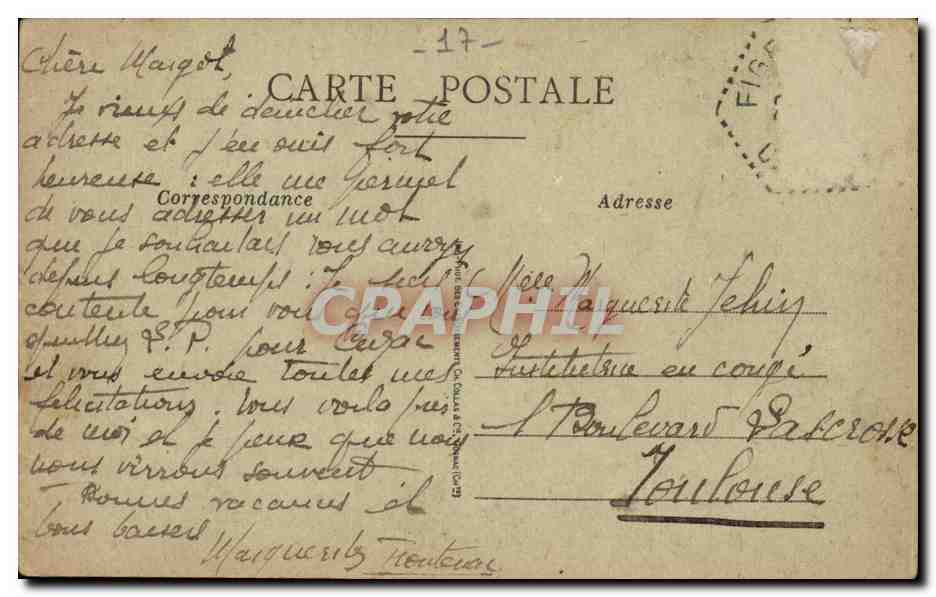 - 17 -
CARTE POSTALE
Correspondance
Adresse
Chère Margot,
Je viens de dénicher votre
adresse et j'en suis fort
heureuse : elle me permet
de vous adresser un mot
que je souhaitais vous envoyer
depuis longtemps : Je suis
contente pour vous que vous
quittiez S. P. pour
et vous envoie toutes mes
félicitations. Vous voilà près
de moi et je pense que nous
nous verrons souvent
Bonnes vacances et
bons baisers
Marguerite Frontenac
Mlle Marguerite Jehin
Institutrice en congé
1 Boulevard Lascrosse
Toulouse
CH. COLLAS & Cie, COGNAC (Chte)
FIGE
CPAPHIL